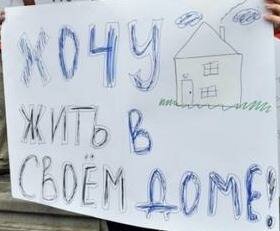 ХОЧУ
ЖИТЬ В
СВОЁМ ДОМЕ!